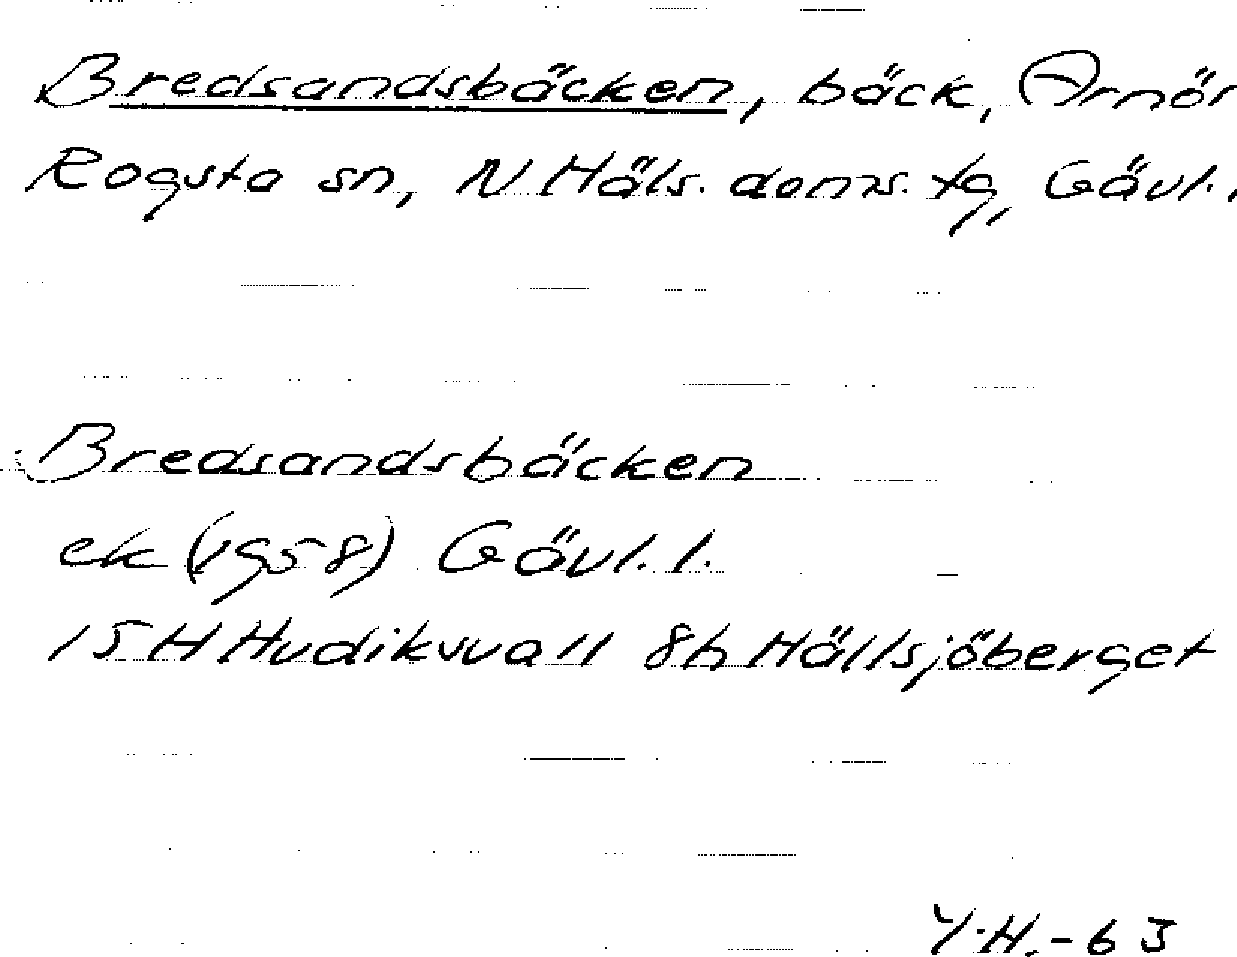 Bredsandsbäcken, bäck, Arnör
Rogsta sn, N Häls. doms. tg, Gävl.
Bredsandsbäcken
ek (1958) Gävl. l.
15H Hudiksvall 8h Hällsjöberget
Y.H.-63